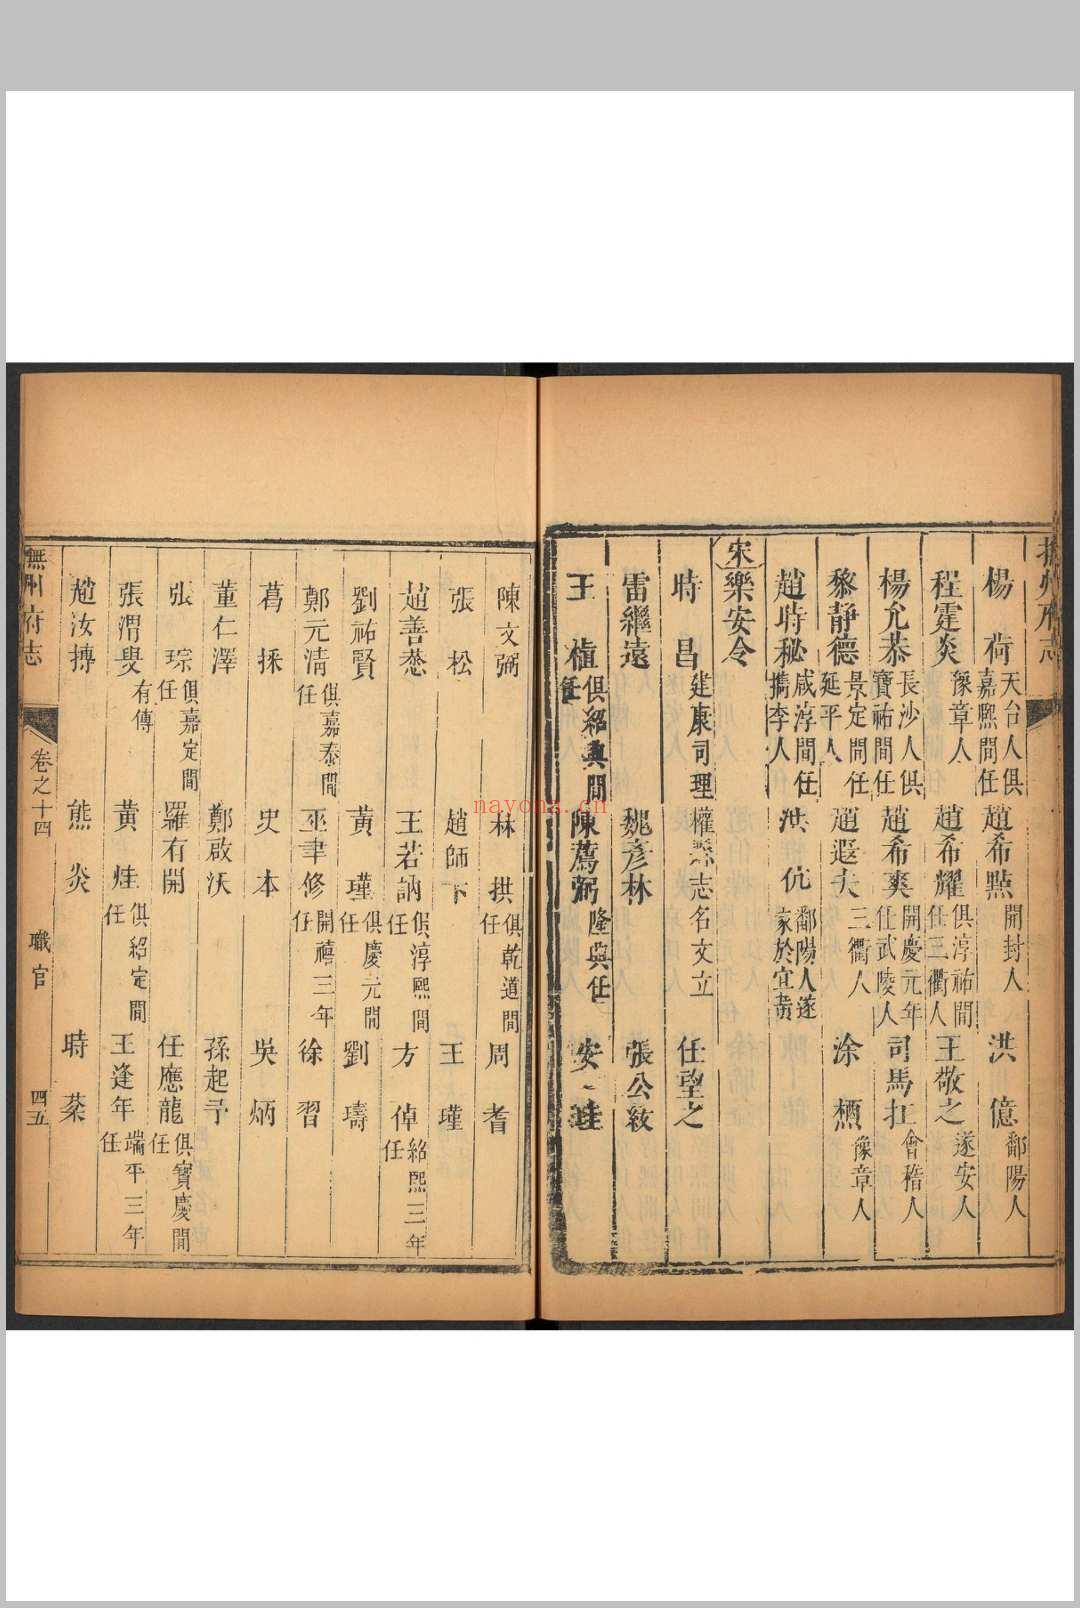 撫州府志
楊荷 天台人俱嘉熙間任 趙希點 開封人 洪億 鄱陽人
程霆炎 豫章人 趙希耀 俱淳祐間任三衢人 王敬之 遂安人
楊允恭 長沙人俱寶祐間任 趙希奭 開慶元年任武陵人 司馬扛 會稽人
黎靜德 景定間任延平人 趙遐夫 三衢人 涂槱 豫章人
趙時秘 咸淳間任攜李人 洪伉 鄱陽人遂家於宜黃
宋樂安令
時昌 建康司理權縣志名文立 任望之
雷繼遠 魏彥林 張公紋
王植 俱紹興間任 陳薦弼 隆興任 安
陳文弼 林拱 俱乾道間任 周耆
張松 趙師卞 王瑾
趙善㤗 王若訥 俱淳熙間任 方倬 紹熙三年任
劉祐賢 黃瑾 俱慶元間任 劉璹
鄭元清 俱嘉泰間任 巫聿修 開禧三年任 徐習
葛採 史本 吳炳
董仁澤 鄭啟沃 孫起予
張琮 俱嘉定間任 羅有開 任應龍 俱寶慶間任
張渭叟 有傳 黃烓 俱紹定間任 王逢年 端平三年任
趙汝摶 熊炎 時棻
撫州府志 卷之十四 職官 四五
nayona.cn